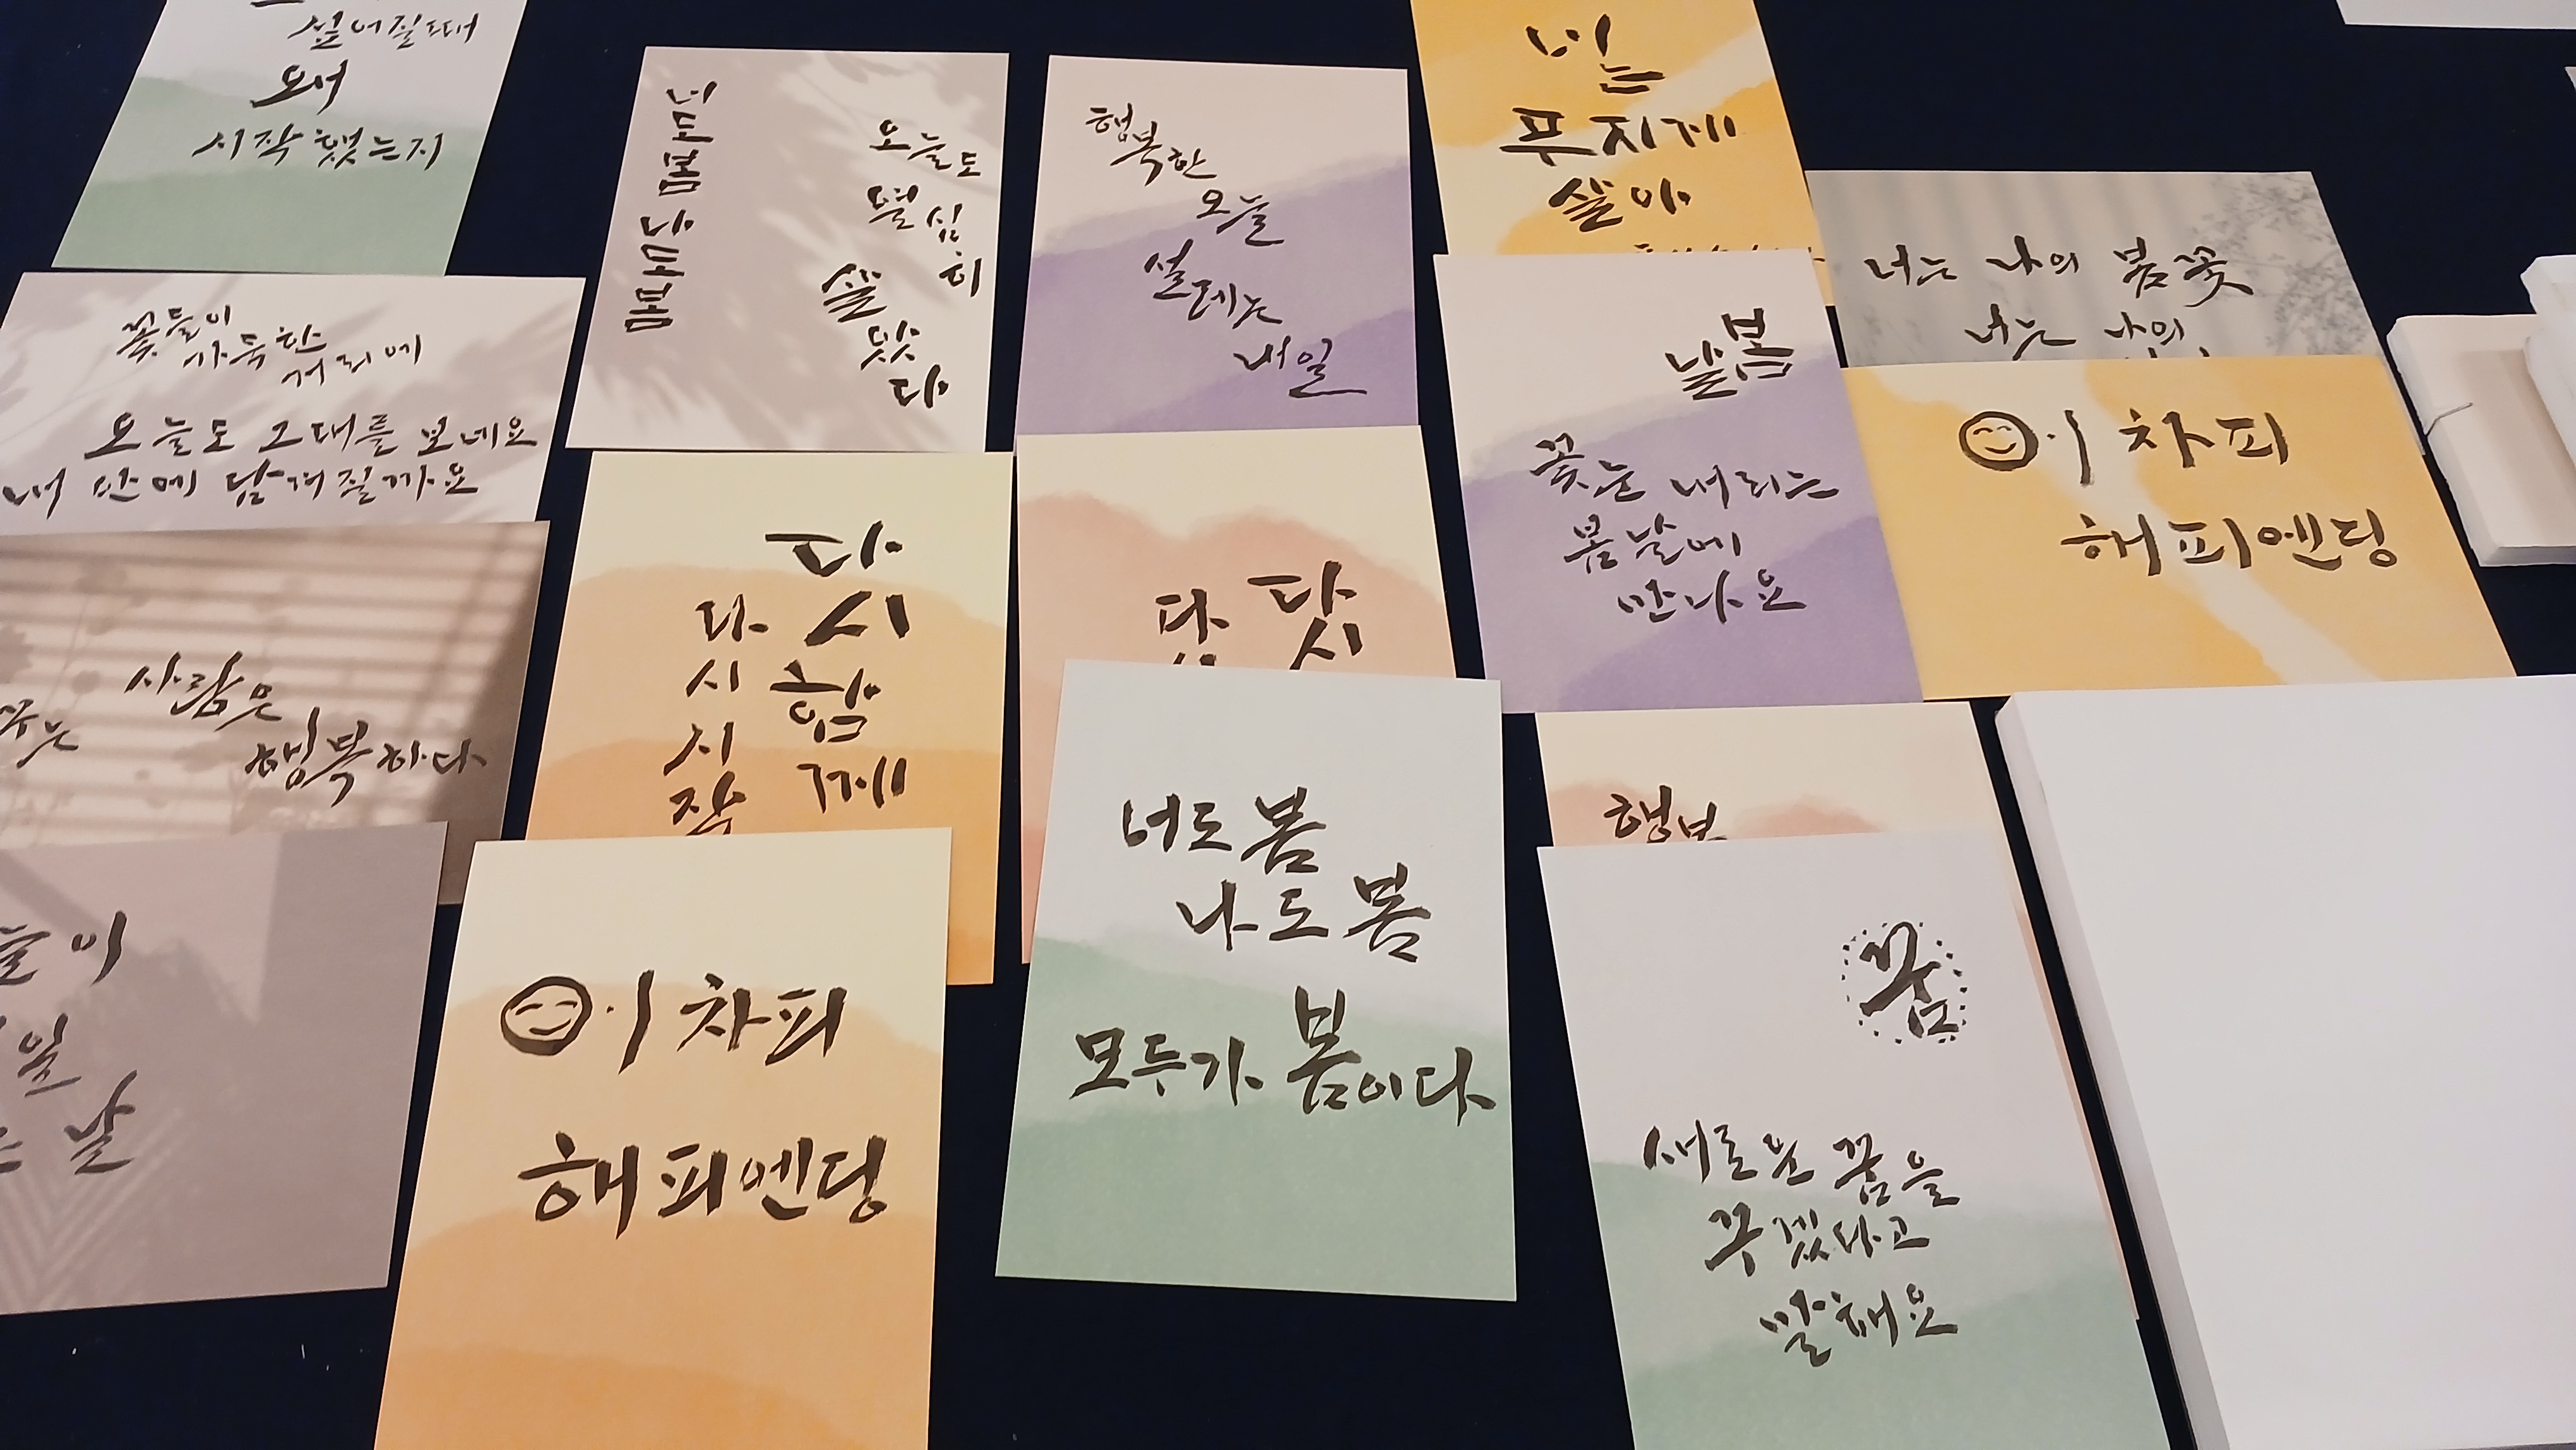 싫어질때
왜
시작했는지
너도봄
나도봄
오늘도
열심
히
살
았
다
행복한
오늘
설레는
내일
너는
무지개
살아
너는 나의 봄꽃
너는 나의
꽃들이
가득한
거리에
오늘도 그대를 보네요
내 안에 담겨질까요
봄
날
꽃눈 내리는
봄날에
만나요
이차피
해피엔딩
사람은
행복하다
다시 함께
다시 시작
다시
다
너도 봄
나도 봄
모두가 봄이다
행보
이차피
해피엔딩
이
일
날
꿈
새로운 꿈을
꾸겠다고
말해요